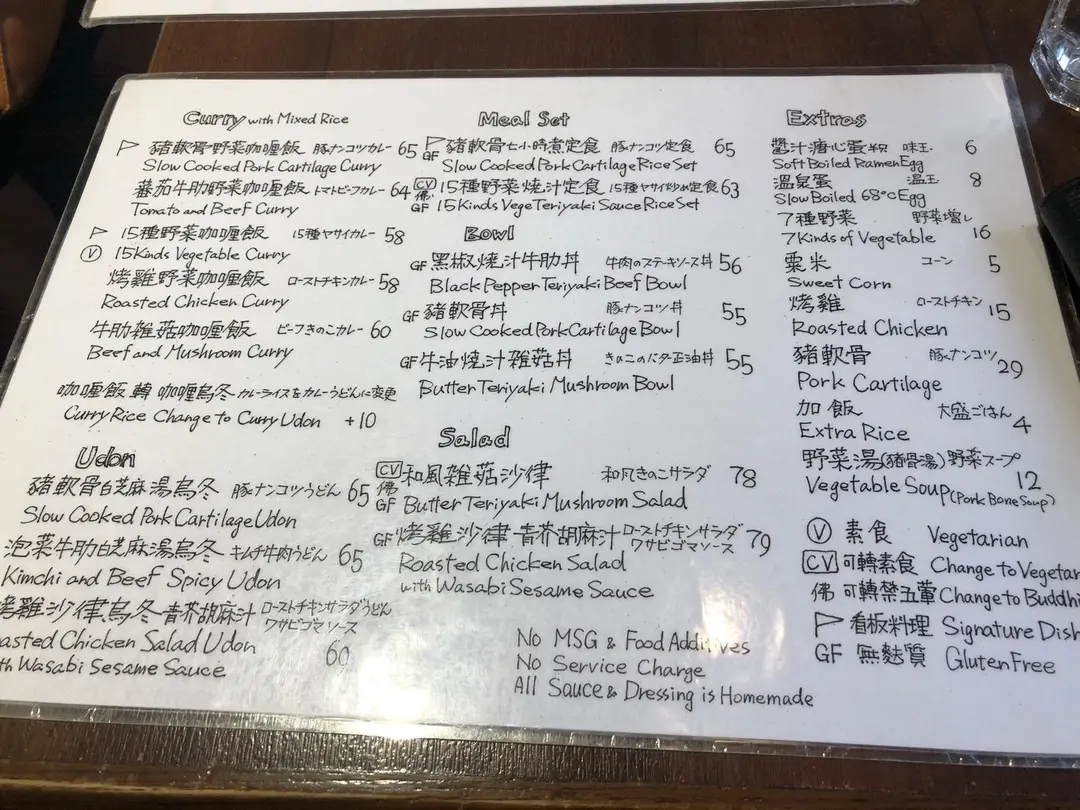 Curry with Mixed Rice
豬軟骨野菜咖喱飯 豚ナンコツカレー 65
Slow Cooked Pork Cartilage Curry
蕃茄牛肋野菜咖喱飯 トマトビーフカレー 64
Tomato and Beef Curry
15種野菜咖喱飯 15種ヤサイカレー 58
Ⓥ 15Kinds Vegetable Curry
烤雞野菜咖喱飯 ローストチキンカレー 58
Roasted Chicken Curry
牛肋雑菇咖喱飯 ビーフきのこカレー 60
Beef and Mushroom Curry
咖喱飯轉咖喱烏冬 カレーライスをカレーうどんに変更
Curry Rice Change to Curry Udon +10
Udon
豬軟骨白芝麻湯烏冬 豚ナンコツうどん 65
Slow Cooked Pork Cartilage Udon
泡菜牛肋白芝麻湯烏冬 キムチ牛肉うどん 65
Kimchi and Beef Spicy Udon
烤雞沙律烏冬 青芥胡麻汁 ローストチキンサラダうどん
ワサビゴマソース
asted Chicken Salad Udon 60
th Wasabi Sesame Sauce
Meal Set
豬軟骨七小時煮定食 豚ナンコツ定食 65
GF Slow Cooked Pork Cartilage Rice Set
CV 佛 15種野菜燒汁定食 15種ヤサイ炒め定食 63
GF 15Kinds Vege Teriyaki Sauce Rice Set
Bowl
GF 黑椒燒汁牛肋丼 牛肉のステーキソース丼 56
Black Pepper Teriyaki Beef Bowl
GF 豬軟骨丼 豚ナンコツ丼 55
Slow Cooked Pork Cartilage Bowl
GF 牛油燒汁雑菇丼 きのこのバター正油丼 55
Butter Teriyaki Mushroom Bowl
Salad
CV 佛 和風雑菇沙律 和風きのこサラダ 78
GF Butter Teriyaki Mushroom Salad
GF 烤雞沙律 青芥胡麻汁 ローストチキンサラダ 79
ワサビゴマソース
Roasted Chicken Salad
with Wasabi Sesame Sauce
No MSG & Food Additives
No Service Charge
All Sauce & Dressing is Homemade
Extras
醬汁溏心蛋 味玉 6
Soft Boiled Ramen Egg
溫泉蛋 温玉 8
Slow Boiled 68°C Egg
7種野菜 野菜増し 16
7Kinds of Vegetable
粟米 コーン 5
Sweet Corn
烤雞 ローストチキン 15
Roasted Chicken
豬軟骨 豚ナンコツ 29
Pork Cartilage
加飯 大盛ごはん 4
Extra Rice
野菜湯(豬骨湯) 野菜スープ 12
Vegetable Soup (Pork Bone Soup)
Ⓥ 素食 Vegetarian
CV 可轉素食 Change to Vegetar
佛 可轉禁五葷 Change to Buddhi
看板料理 Signature Dish
GF 無麩質 Gluten Free